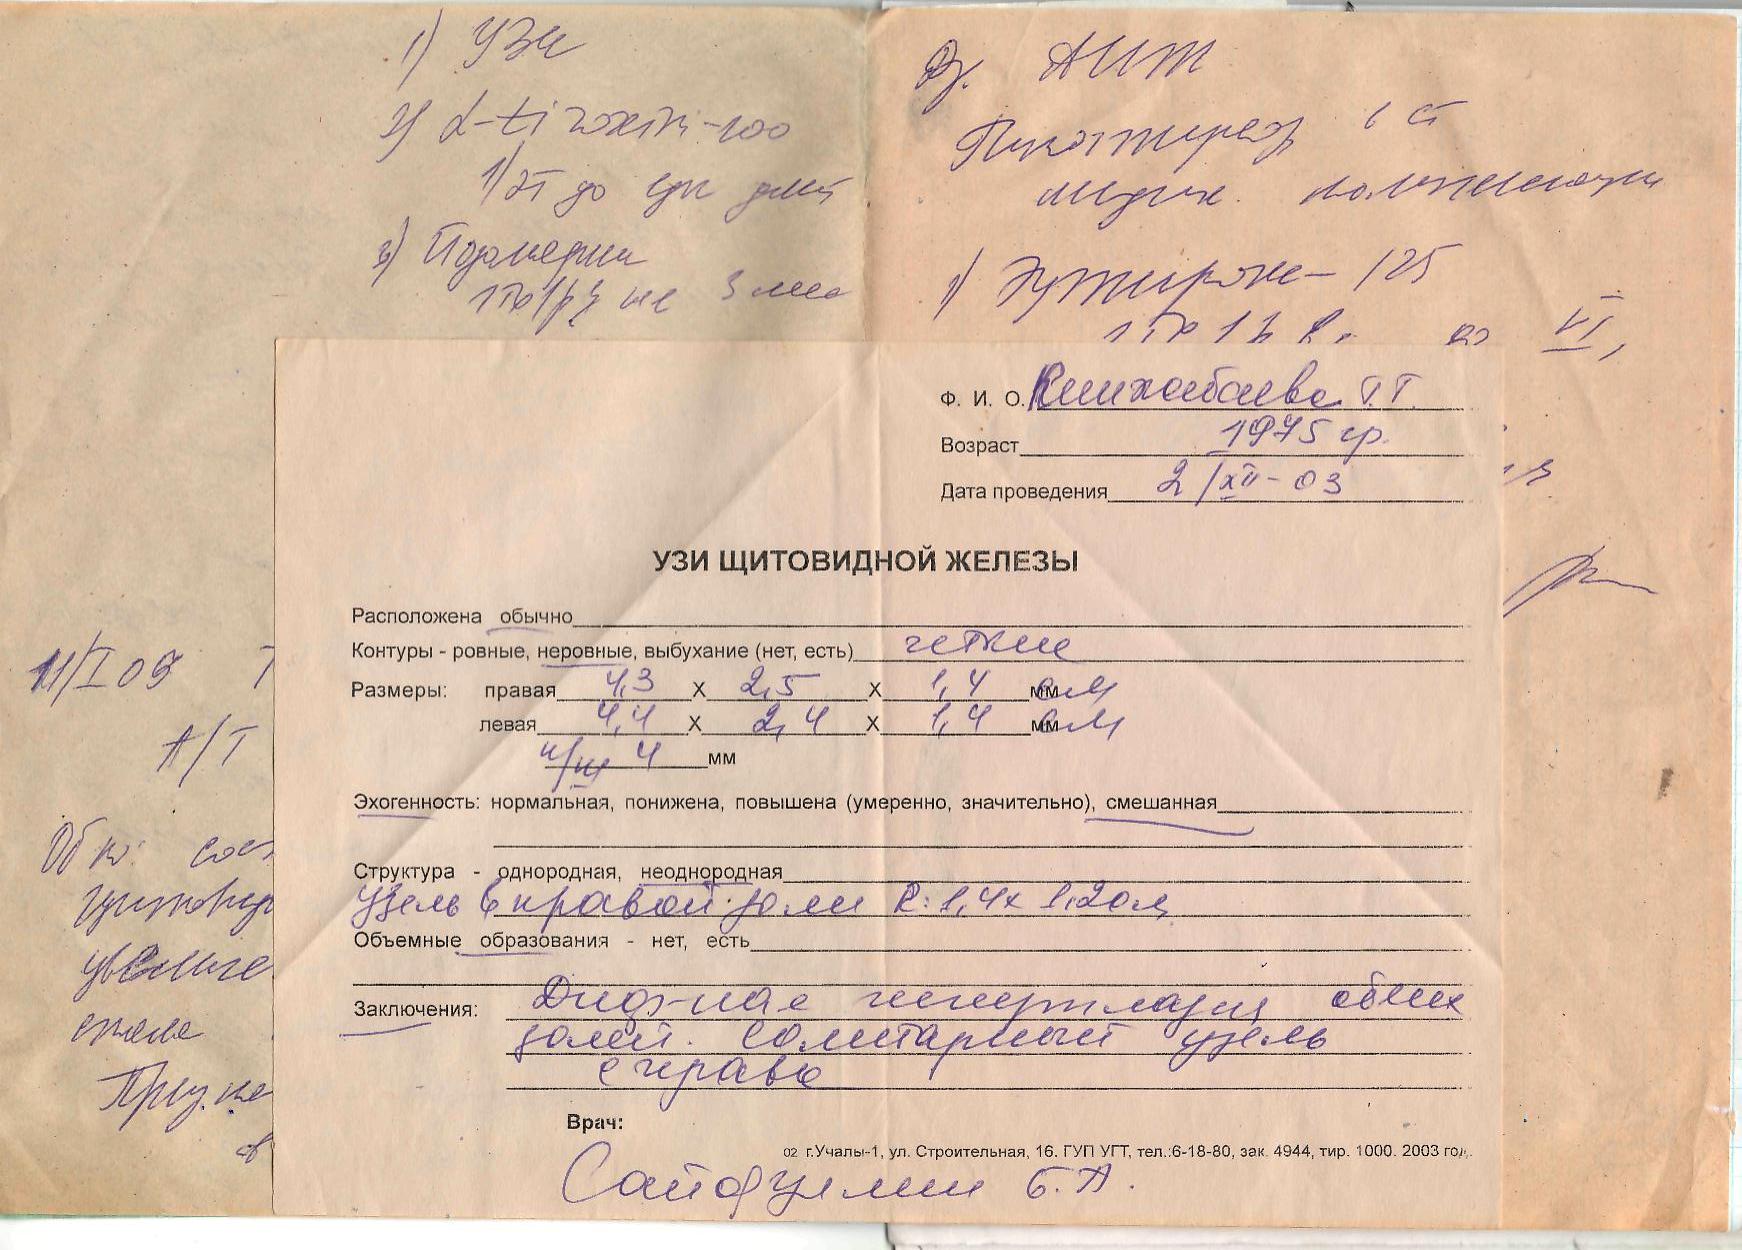 1) УЗИ
2) L-tiroxin-100
1/2т до еды дл
3)
1тб 1/рд 3 мес
Ds. АИТ
Гипотиреоз ст
медик. компенсации
1) Эутирокс - 125
VI,
Ф. И. О. Г.Г.
Возраст 1975 гр.
Дата проведения 2/XII-03
УЗИ ЩИТОВИДНОЙ ЖЕЛЕЗЫ
Расположена обычно
Контуры - ровные, неровные, выбухание (нет, есть) четкие
Размеры: правая 4,3 X 2,5 X 1,4 мм см
левая 4,4 X 2,4 X 1,4 мм см
п/ш 4 мм
Эхогенность: нормальная, понижена, повышена (умеренно, значительно), смешанная
Структура - однородная, неоднородная
узель в правой доли R: 1,4х 1,2см
Объемные образования - нет, есть
Заключения: Диф-ная гиперплазия обеих
долей. Солитарный узель
справа
Врач:
02 г.Учалы-1, ул. Строительная, 16. ГУП УГТ, тел.:6-18-80, зак. 4944, тир. 1000. 2003 год.
Сайфуллин Б.А.
11/I 09 Т
А/Т
Об но: сос
щитовид
увеличе
Пр